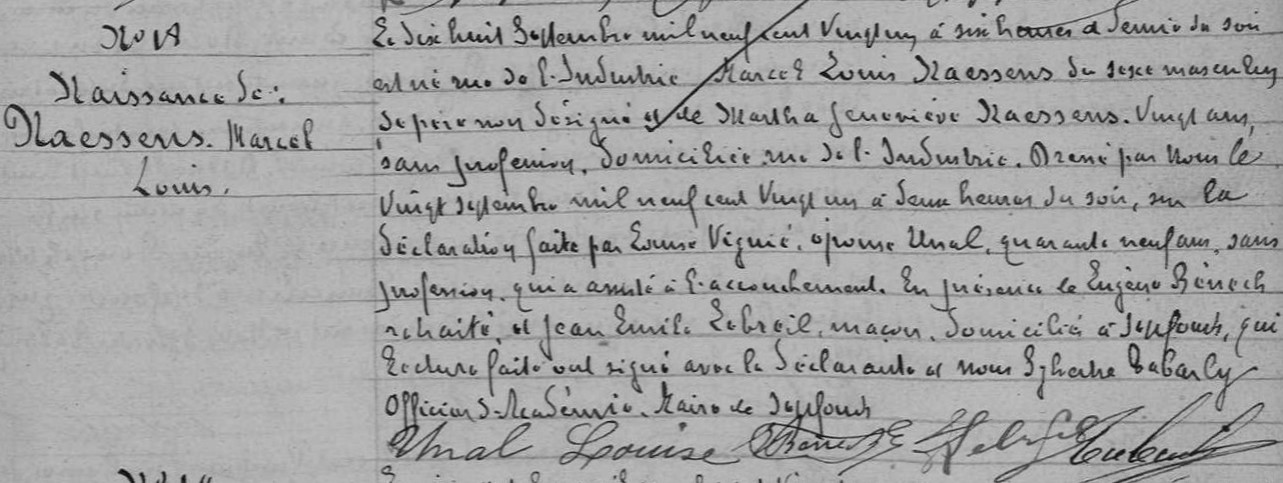 Naissance de :
Naessens. Marcel
Louis.
Le dix huit Septembre mil neuf cent Vingt un à six heures et demie du soir
est né rue de l'Industrie Marcel Louis Naessens du sexe masculin
de père non désigné et de Martha Geneviève Naessens. Vingt ans,
sans profession, domiciliée rue de l'Industrie. Dressé par Nous le
Vingt septembre mil neuf cent Vingt un à deux heures du soir, sur la
déclaration faite par Louise Viguié, épouse Unal, quarante neuf ans, sans
profession, qui a assisté à l'accouchement. En présence de Eugène Bénech
retraité, et Jean Emile Lebreil, maçon, domiciliés à Septfonds, qui
Lecture faite ont signé avec la déclarante et nous Sylvestre Tabarly
Officier d'Académie. Maire de Septfonds
Unal Louise